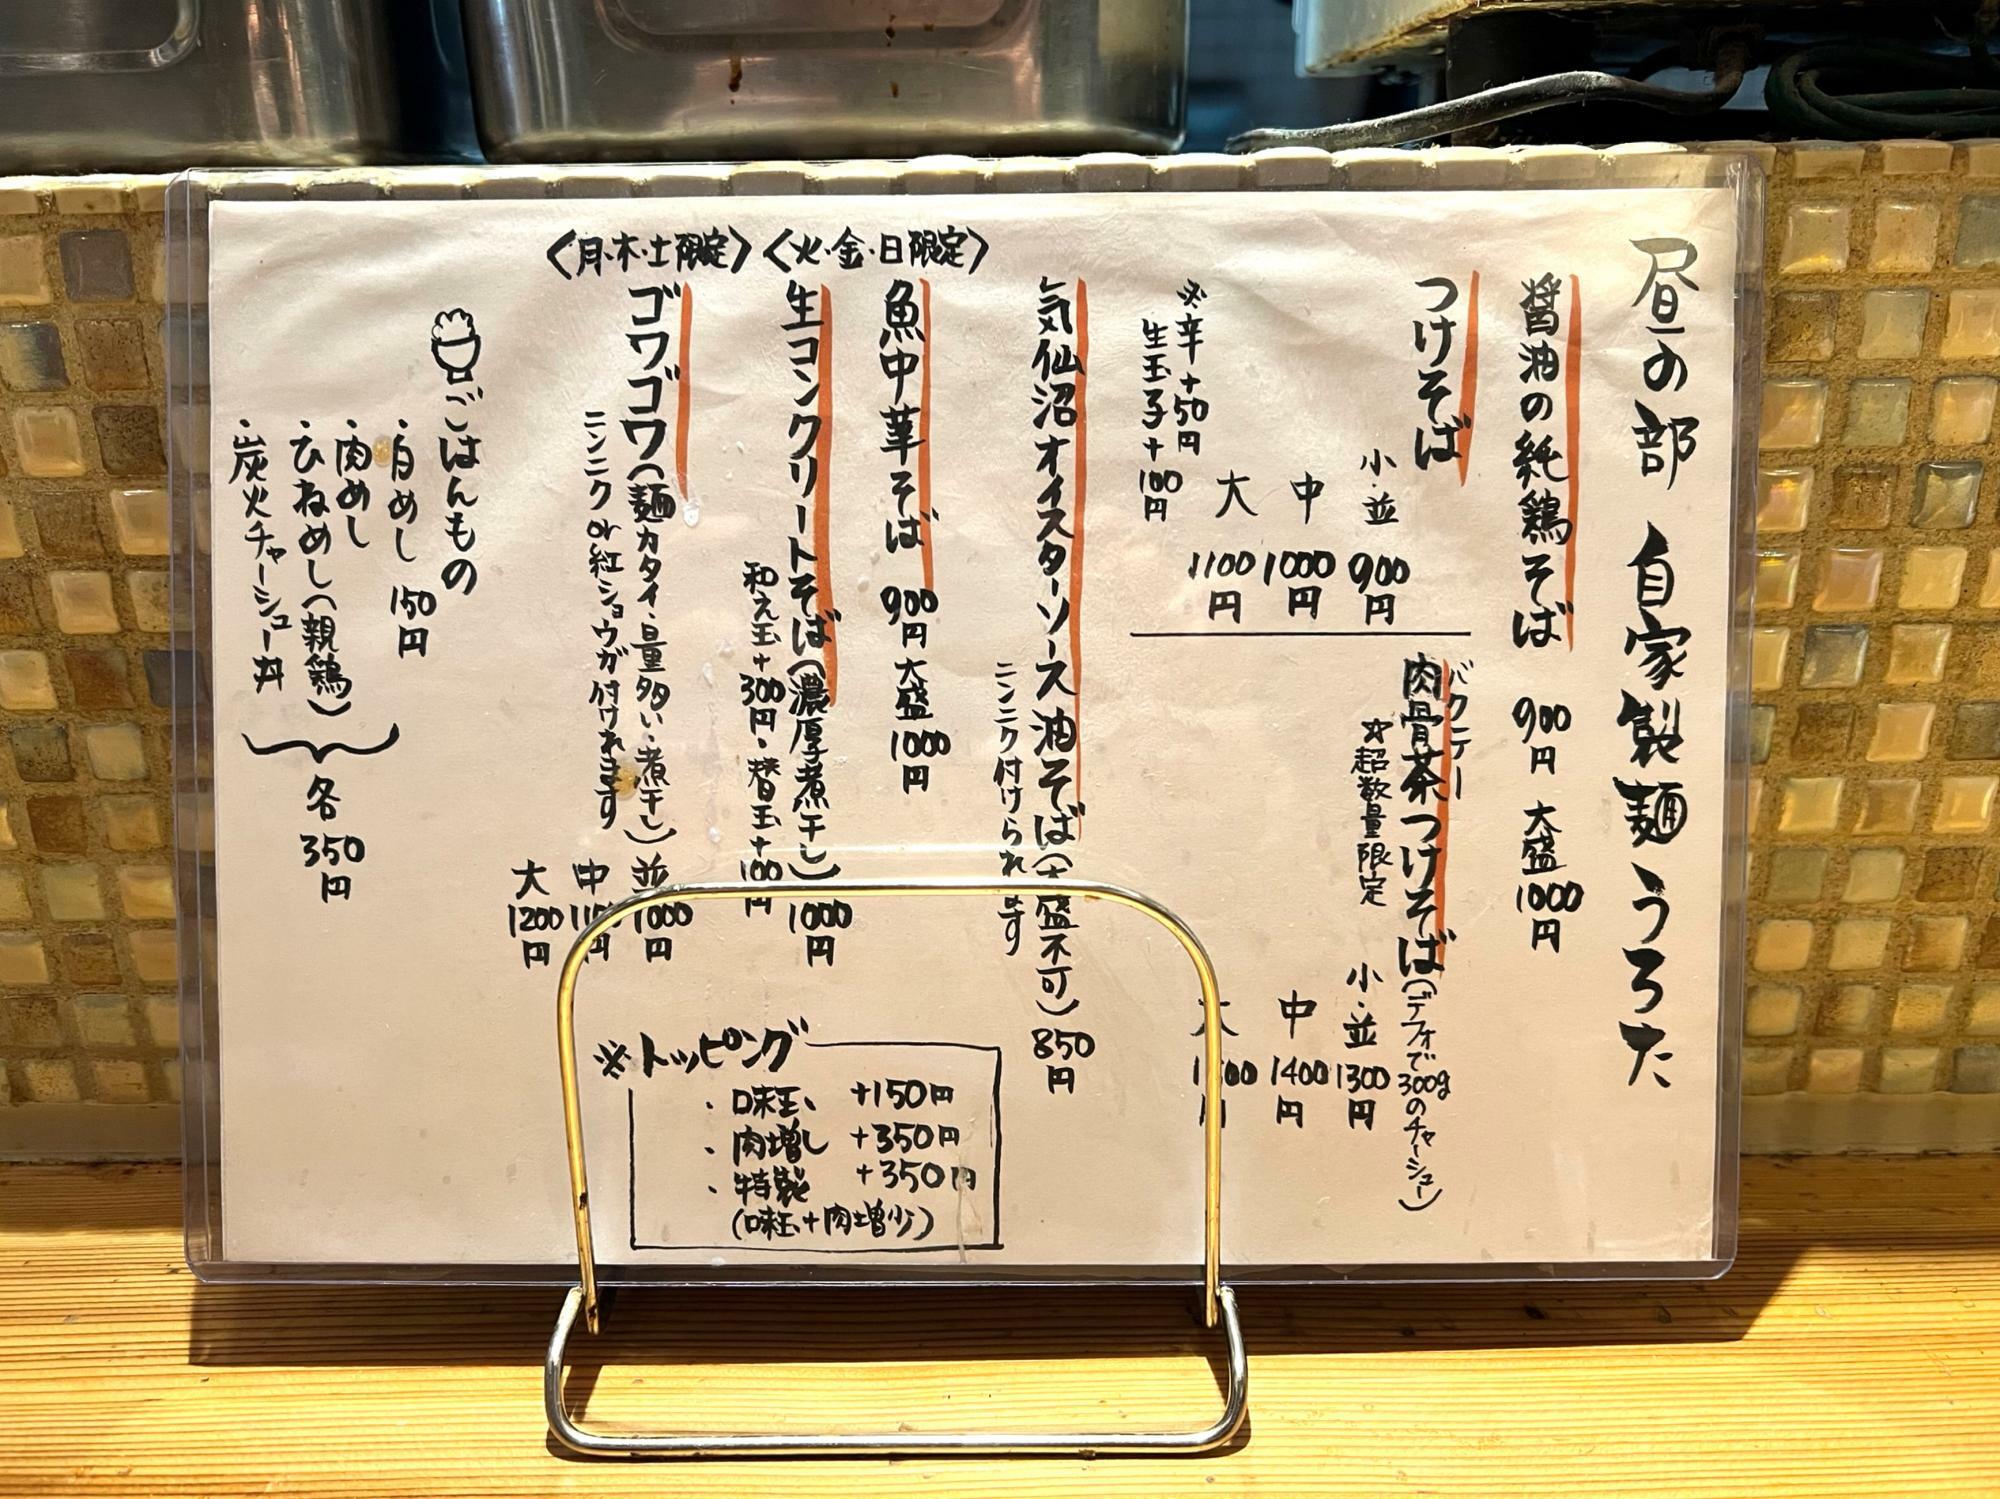 昼の部 自家製麺うろた
醤油の純鶏そば 900円 大盛1000円
つけそば
小・並 900円
中 1000円
大 1100円
※辛+50円
生玉子+100円
バクテー
肉骨茶つけそば(デフォで300gのチャーシュー)
☆超数量限定
小・並 1300円
中 1400円
大
気仙沼オイスターソース油そば(大盛不可) 850円
ニンニク付けられます
〈火・金・日限定〉
魚中華そば 900円 大盛1000円
生コンクリートそば(濃厚煮干し) 1000円
和え玉+300円・替玉+100円
〈月・木・土限定〉
ゴワゴワ(麺カタイ・量多い・煮干し) 並1000円
ニンニクor紅ショウガ付けれます
中1100円
大1200円
ごはんもの
・白めし 150円
・肉めし
・ひねめし(親鶏)
・炭火チャーシュー丼
各350円
※トッピング
・味玉 +150円
・肉増し +350円
・特製 +350円
(味玉+肉増少)